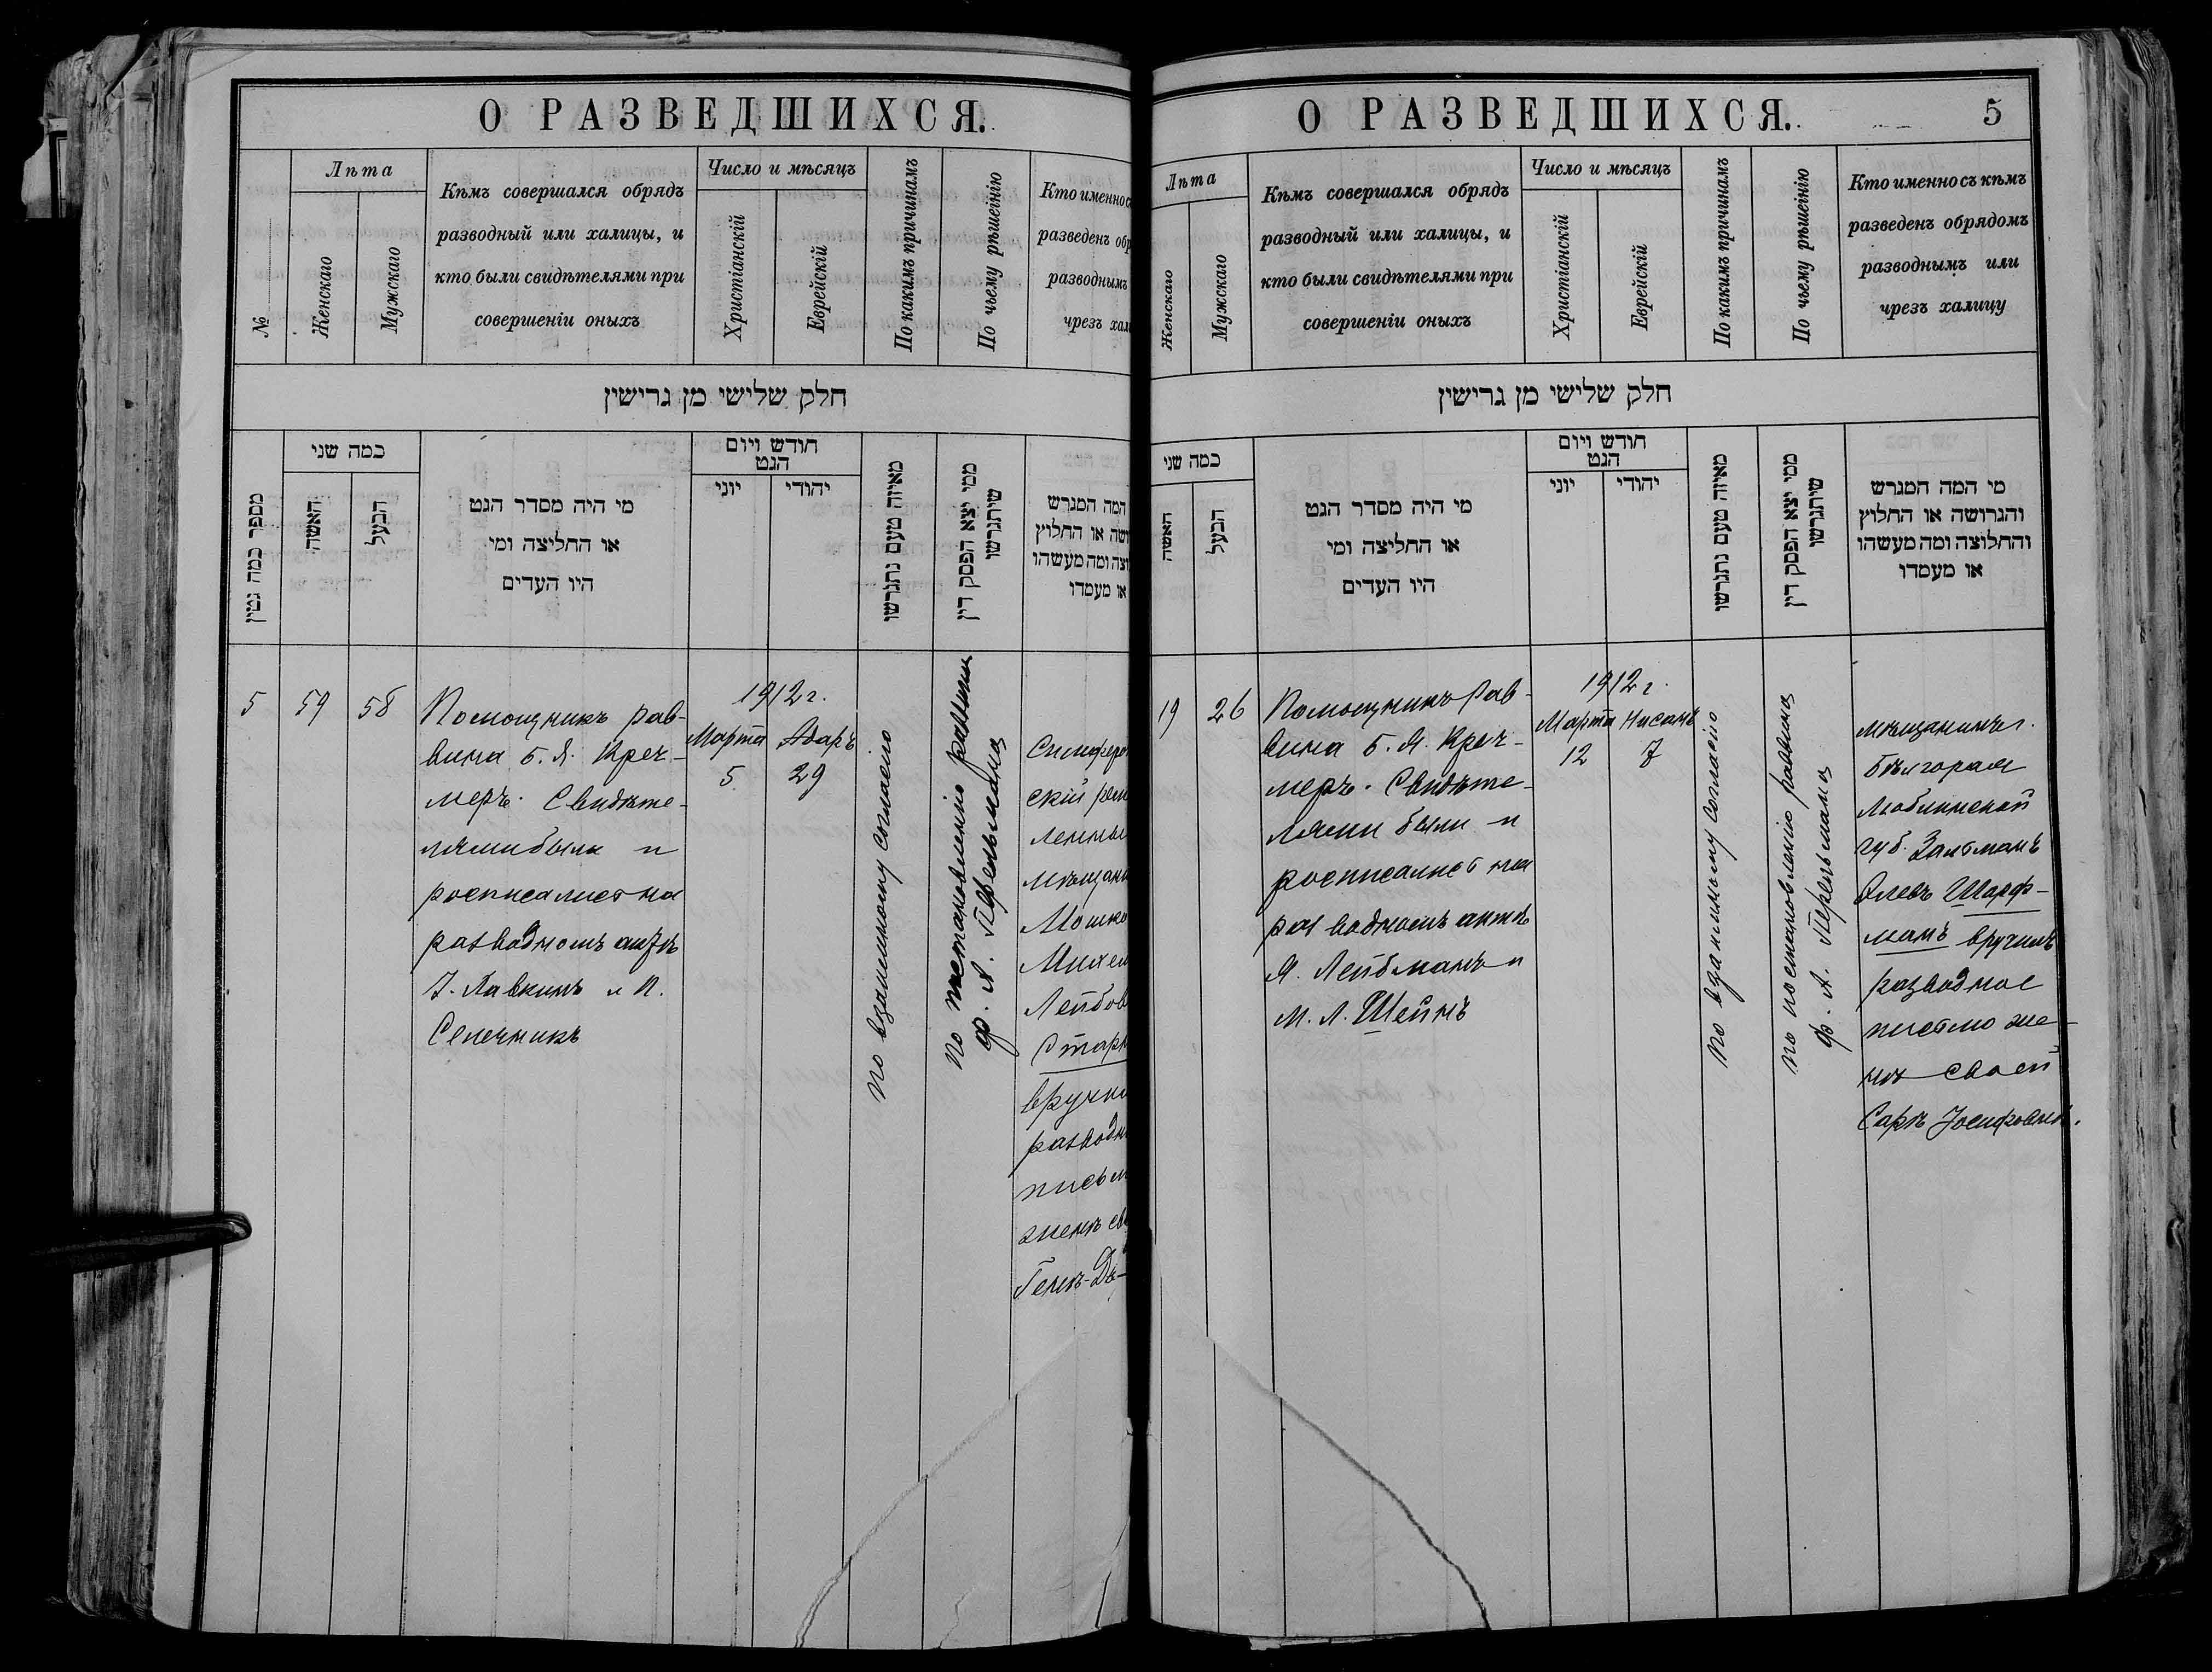 О РАЗВЕДШИХСЯ.
№
Лѣта
Женскаго
Мужскаго
Кѣмъ совершался обрядъ
разводный или халицы, и
кто были свидѣтелями при
совершеніи оныхъ
Число и мѣсяцъ
Христіанскій
Еврейскій
По какимъ причинамъ
По чьему рѣшеінію
Кто именно съ
разведенъ обр
разводнымъ
чрезъ хал
חלק שלישי מן גרישין
מספר כמה גטין
כמה שני
האשה
הבעל
מי היה מסדר הגט
או החליצה ומי
היו העדים
חודש ויום
הגט
יוני
יהודי
מאיזה טעם נתגרשו
ממי יצא הפסק דין
שיתגרשו
המה המגרש
ושה או החלוץ
וצה ומה מעשהו
או מעמדו
5
59
58
Помощникъ рав-
вина Б. Я. Креч-
меръ. Свидѣте-
лями были и
росписались на
разводномъ актѣ
І. Лавкинъ и П.
Селечникъ
1912 г.
Марта Адаръ
5 29
По взаимному согласію
По постановленію раввина
Ф. А. Перельмана
Симферо
скій реме
ленный
мѣщани
Мошко
Михел
Лейбов
Старк
вручи
разводн
письм
женѣ св
Генѣ-Дв-
О РАЗВЕДШИХСЯ.
5
Лѣта
Женскаго
Мужскаго
Кѣмъ совершался обрядъ
разводный или халицы, и
кто были свидѣтелями при
совершеніи оныхъ
Число и мѣсяцъ
Христіанскій
Еврейскій
По какимъ причинамъ
По чьему рѣшеінію
Кто именно съ кѣмъ
разведенъ обрядомъ
разводнымъ или
чрезъ халицу
חלק שלישי מן גרישין
כמה שני
האשה
הבעל
מי היה מסדר הגט
או החליצה ומי
היו העדים
חודש ויום
הגט
יוני
יהודי
מאיזה טעם נתגרשו
ממי יצא הפסק דין
שיתגרשו
מי המה המגרש
והגרושה או החלוץ
והחלוצה ומה מעשהו
או מעמדו
19
26
Помощникъ рав-
вина Б. Я. Креч-
меръ. Свидѣте-
лями были и
росписались на
разводномъ актѣ
Я. Лейбманъ и
М. Л. Шейнъ
1912 г.
Марта Нисанъ
12 7
По взаимному согласію
По постановленію раввина
Ф. А. Перельмана
Мѣщанинъ г.
Бѣлгорая
Люблинской
губ. Залманъ
Шарф-
манъ вручилъ
разводное
письмо же-
нѣ своей
Сарѣ Іосифовнѣ.